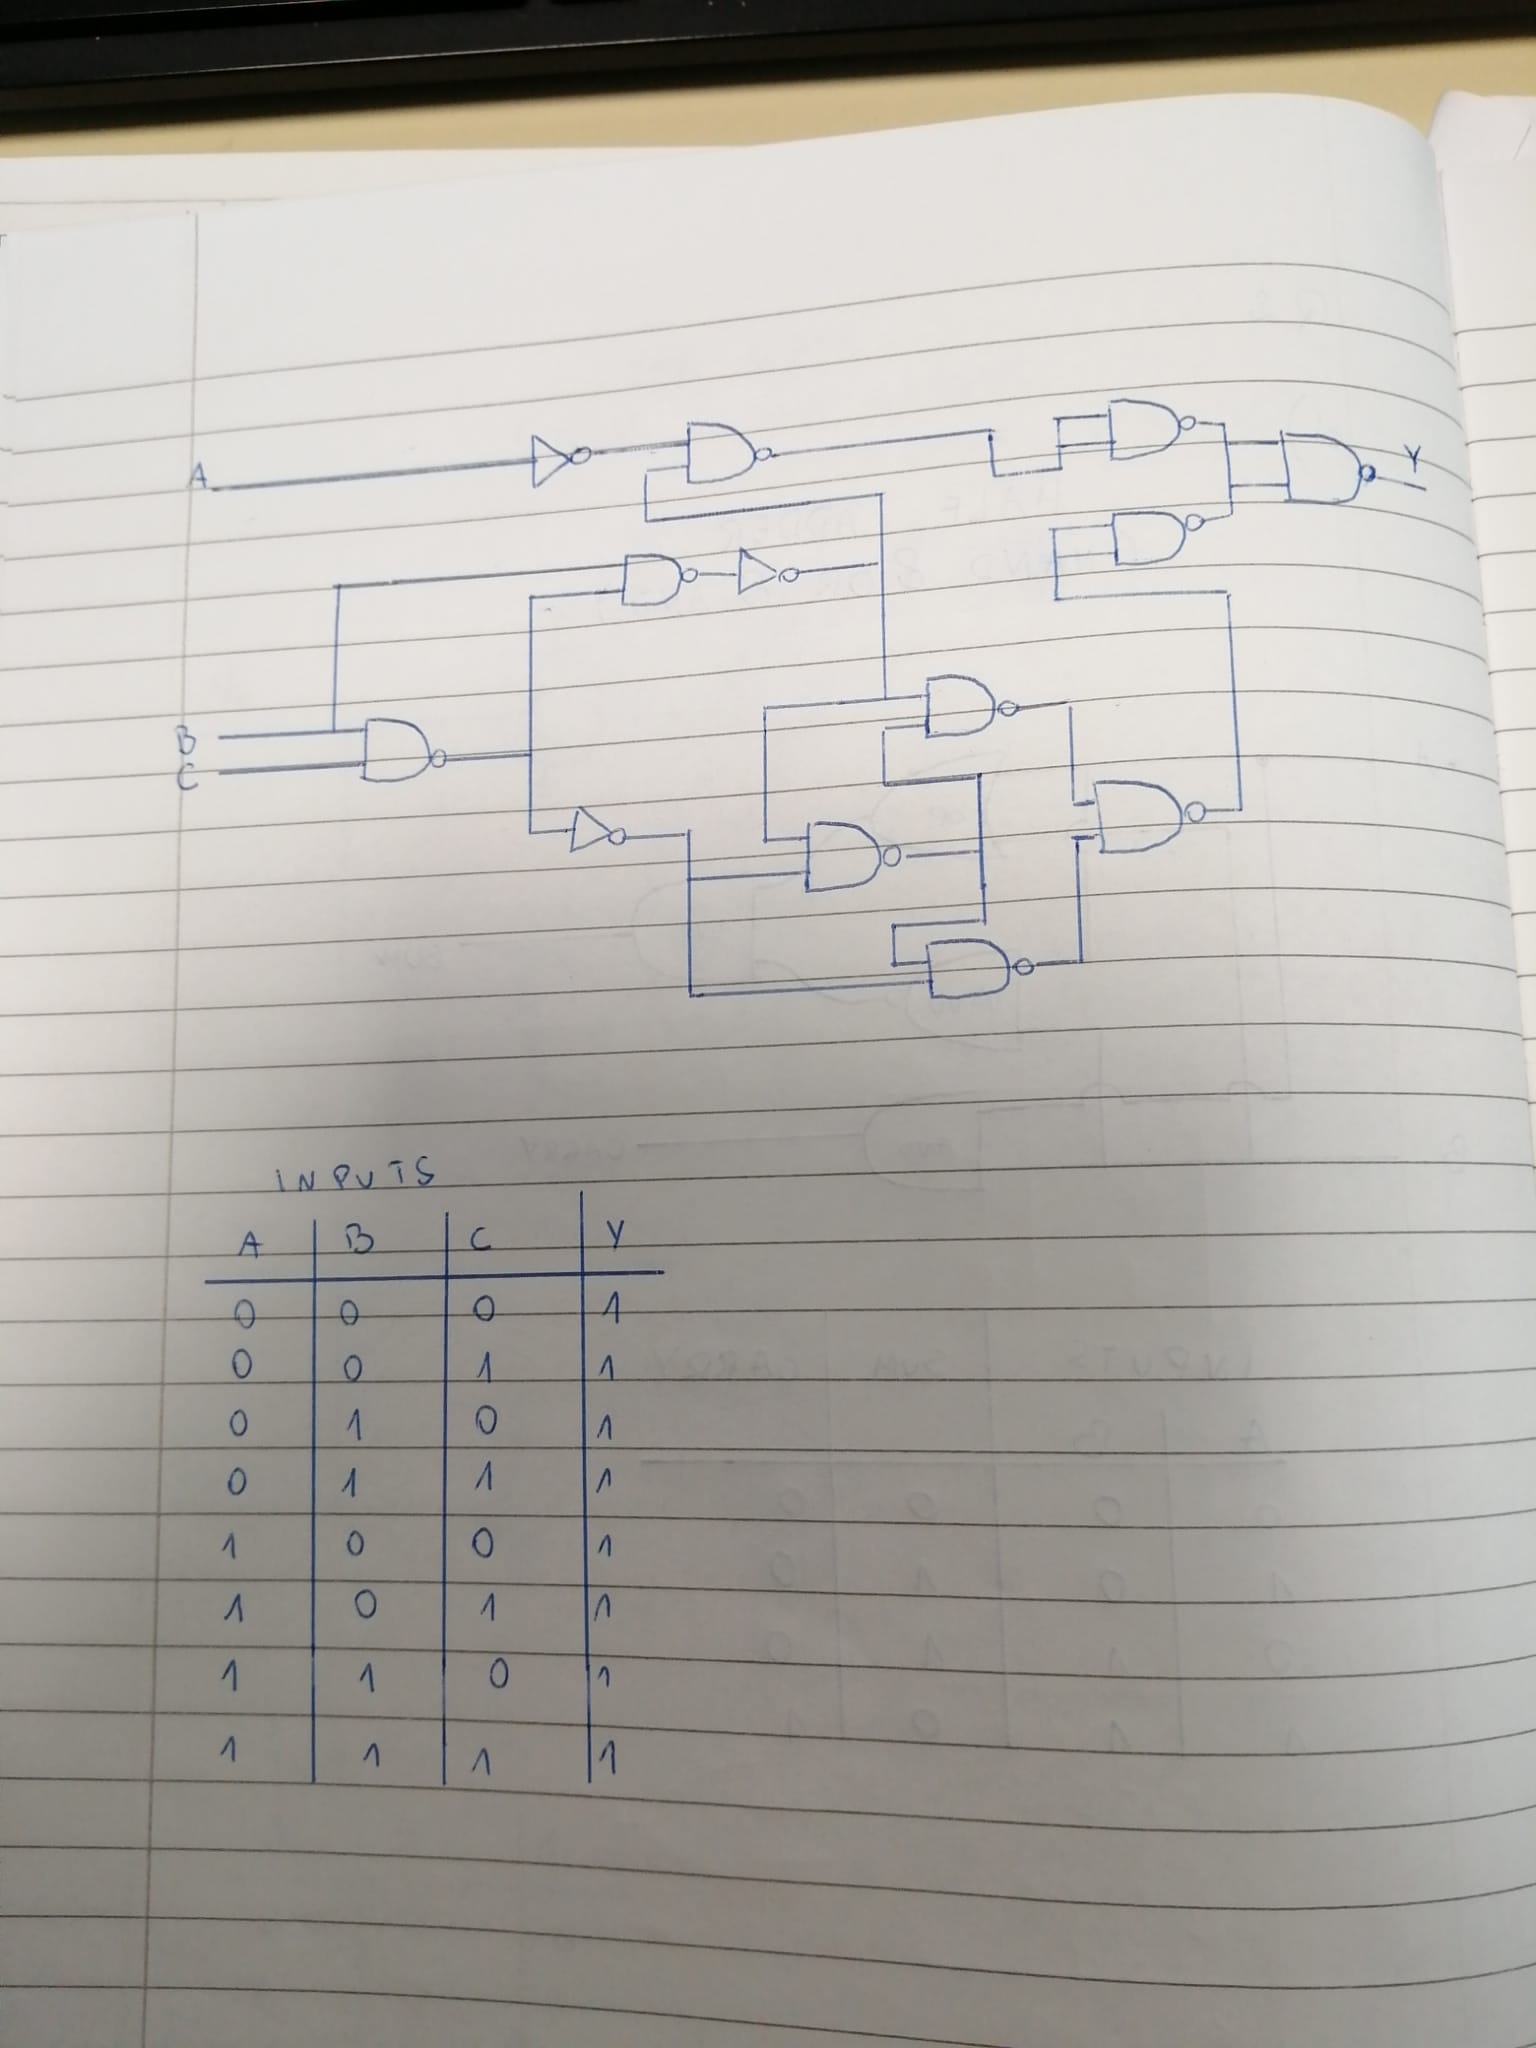 A
Y
B
C
INPUTS
A B C Y
0 0 0 1
0 0 1 1
0 1 0 1
0 1 1 1
1 0 0 1
1 0 1 1
1 1 0 1
1 1 1 1